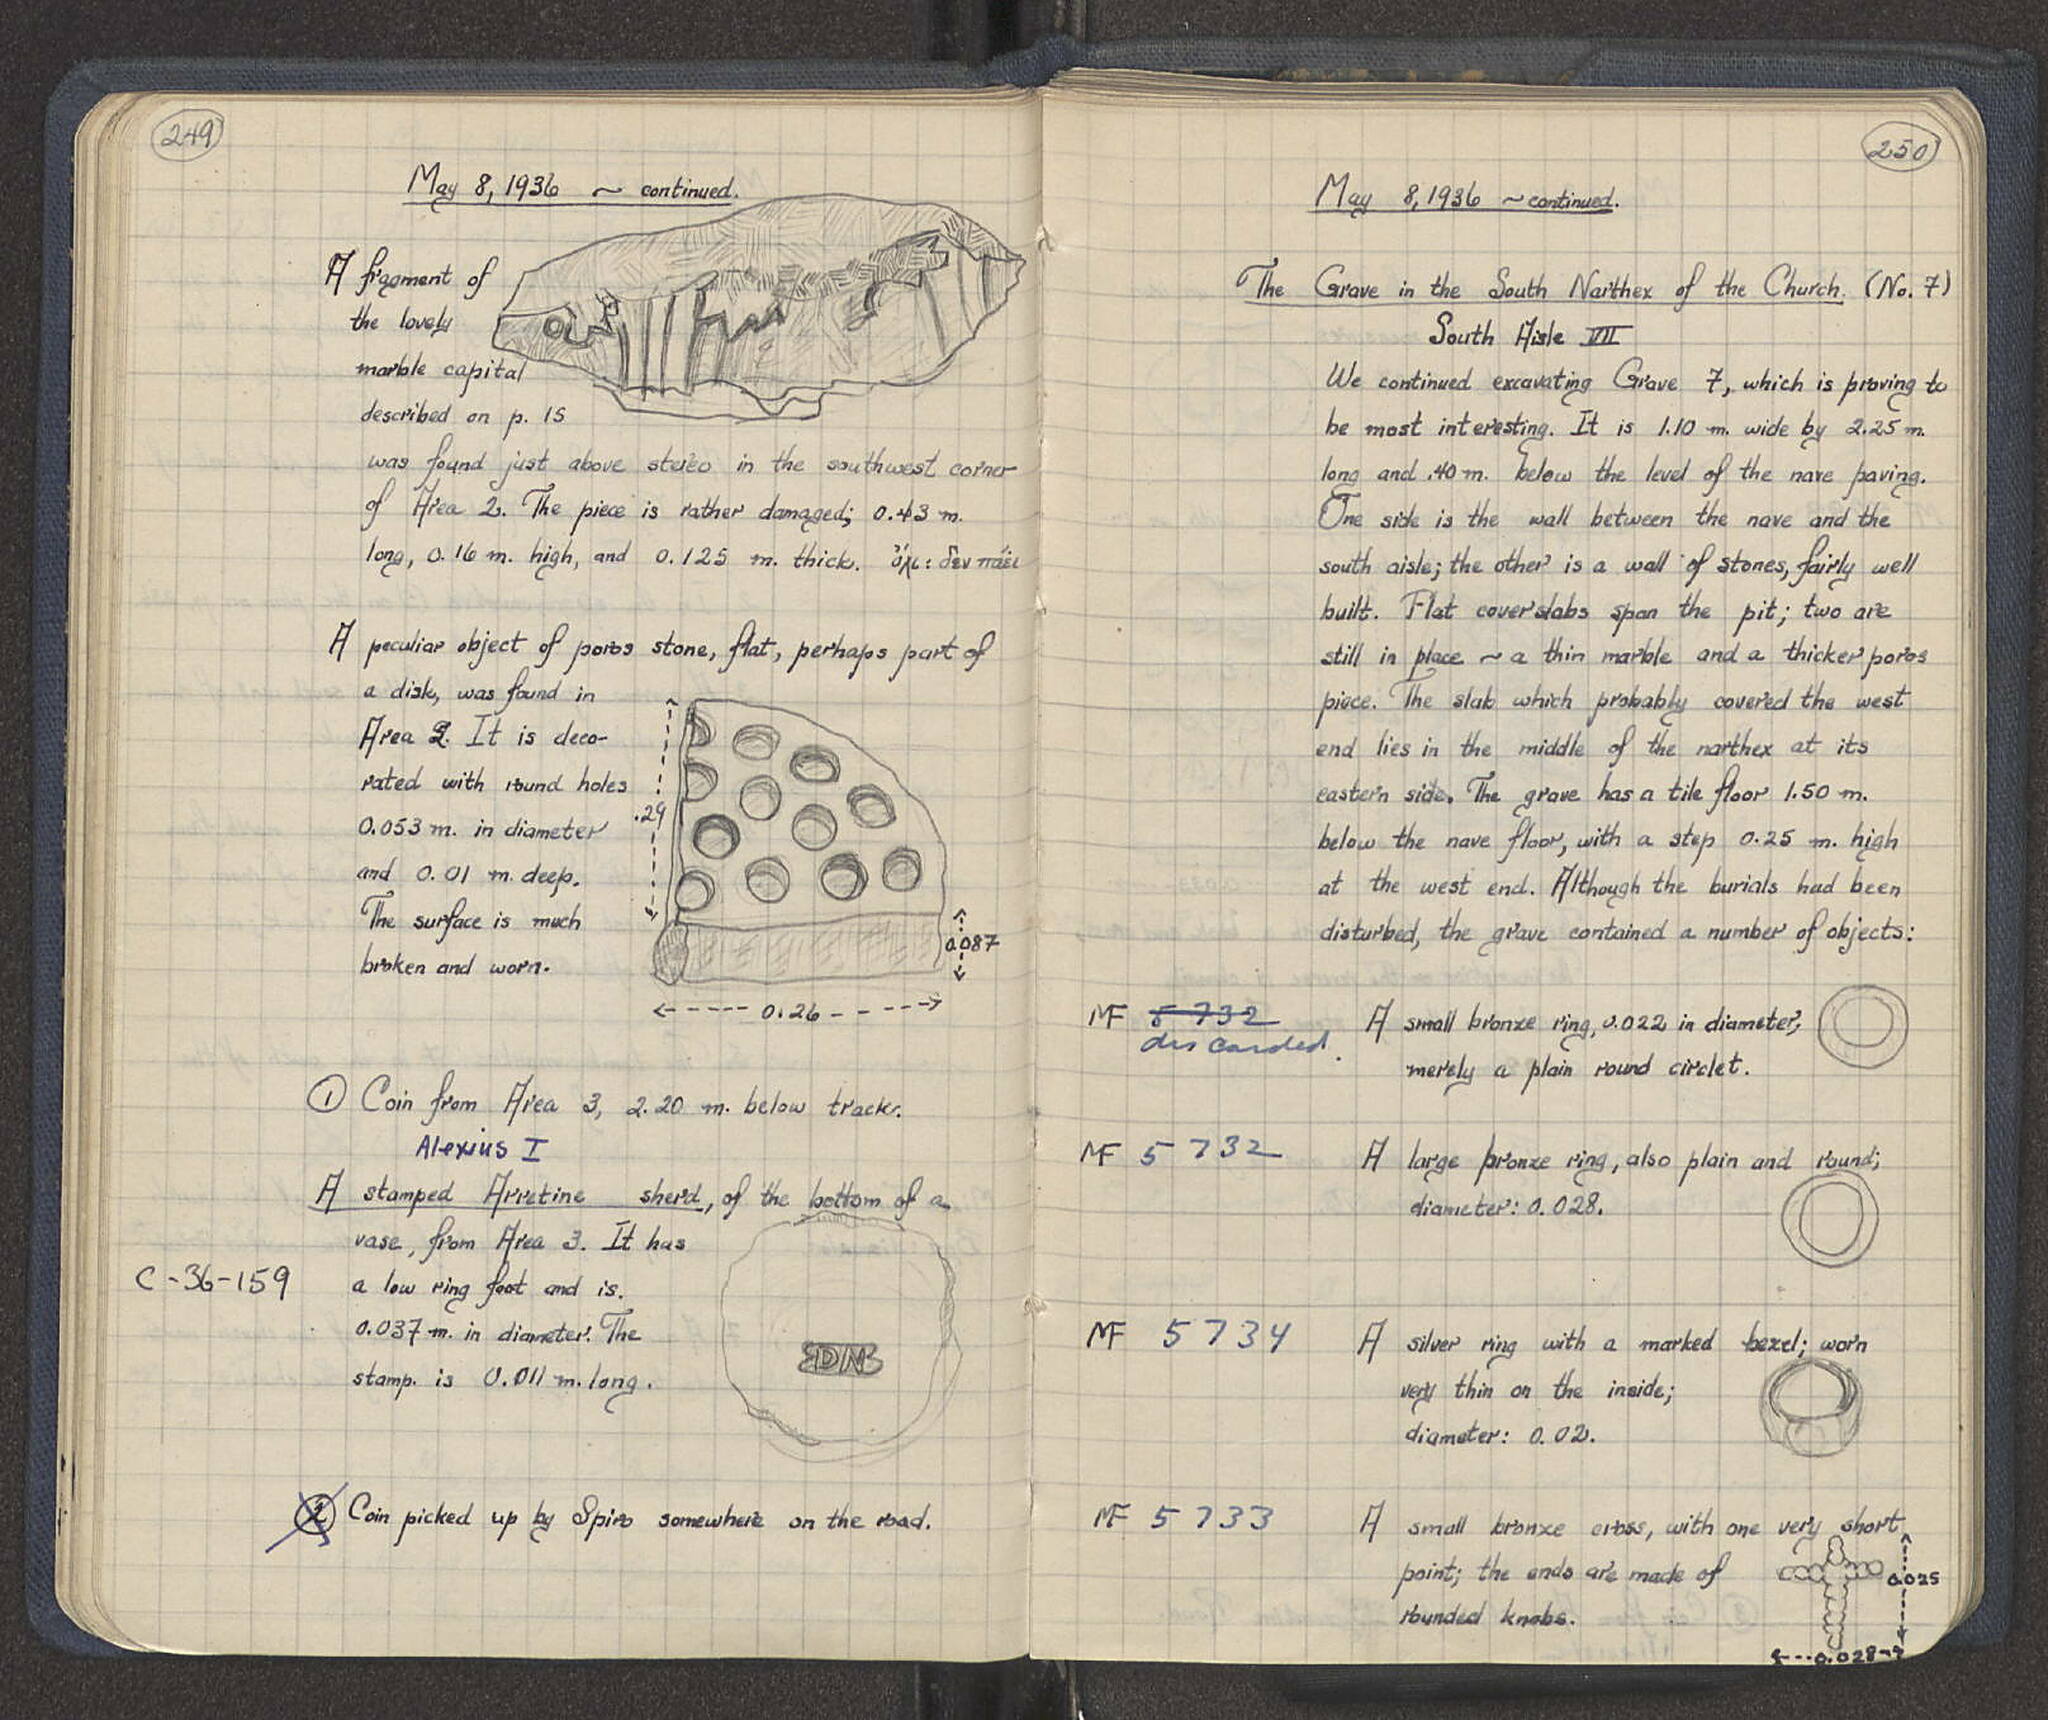 249
May 8, 1936 ~ continued.
A fragment of
the lovely
marble capital
described on p. 15
was found just above stereo in the southwest corner
of Area 2. The piece is rather damaged; 0.43 m.
long, 0.16 m. high, and 0.125 m. thick. ὄχι: δεν πάει
A peculiar object of poros stone, flat, perhaps part of
a disk, was found in
Area 2. It is deco-
rated with round holes
0.053 m. in diameter
and 0.01 m. deep.
The surface is much
broken and worn.
.29
0.087
0.26
① Coin from Area 3, 2.20 m. below track.
Alexius I
A stamped Arretine sherd, of the bottom of a
vase, from Area 3. It has
C-36-159
a low ring foot and is
0.037 m. in diameter. The
stamp is 0.011 m. long.
DN
② Coin picked up by Spiro somewhere on the road.
250
May 8, 1936 ~ continued.
The Grave in the South Narthex of the Church (No. 7)
South Aisle VII
We continued excavating Grave 7, which is proving to
be most interesting. It is 1.10 m. wide by 2.25 m.
long and .40 m. below the level of the nave paving.
One side is the wall between the nave and the
south aisle; the other is a wall of stones, fairly well
built. Flat coverslabs span the pit; two are
still in place ~ a thin marble and a thicker poros
piece. The slab which probably covered the west
end lies in the middle of the narthex at its
eastern side. The grave has a tile floor 1.50 m.
below the nave floor, with a step 0.25 m. high
at the west end. Although the burials had been
disturbed, the grave contained a number of objects:
MF 5732 A small bronze ring, 0.022 in diameter;
discarded.
merely a plain round circlet.
MF 5732 A large bronze ring, also plain and round;
diameter: 0.028.
MF 5734 A silver ring with a marked bezel; worn
very thin on the inside;
diameter: 0.02.
MF 5733 A small bronze cross, with one very short
point; the ends are made of
rounded knobs.
0.025
0.028